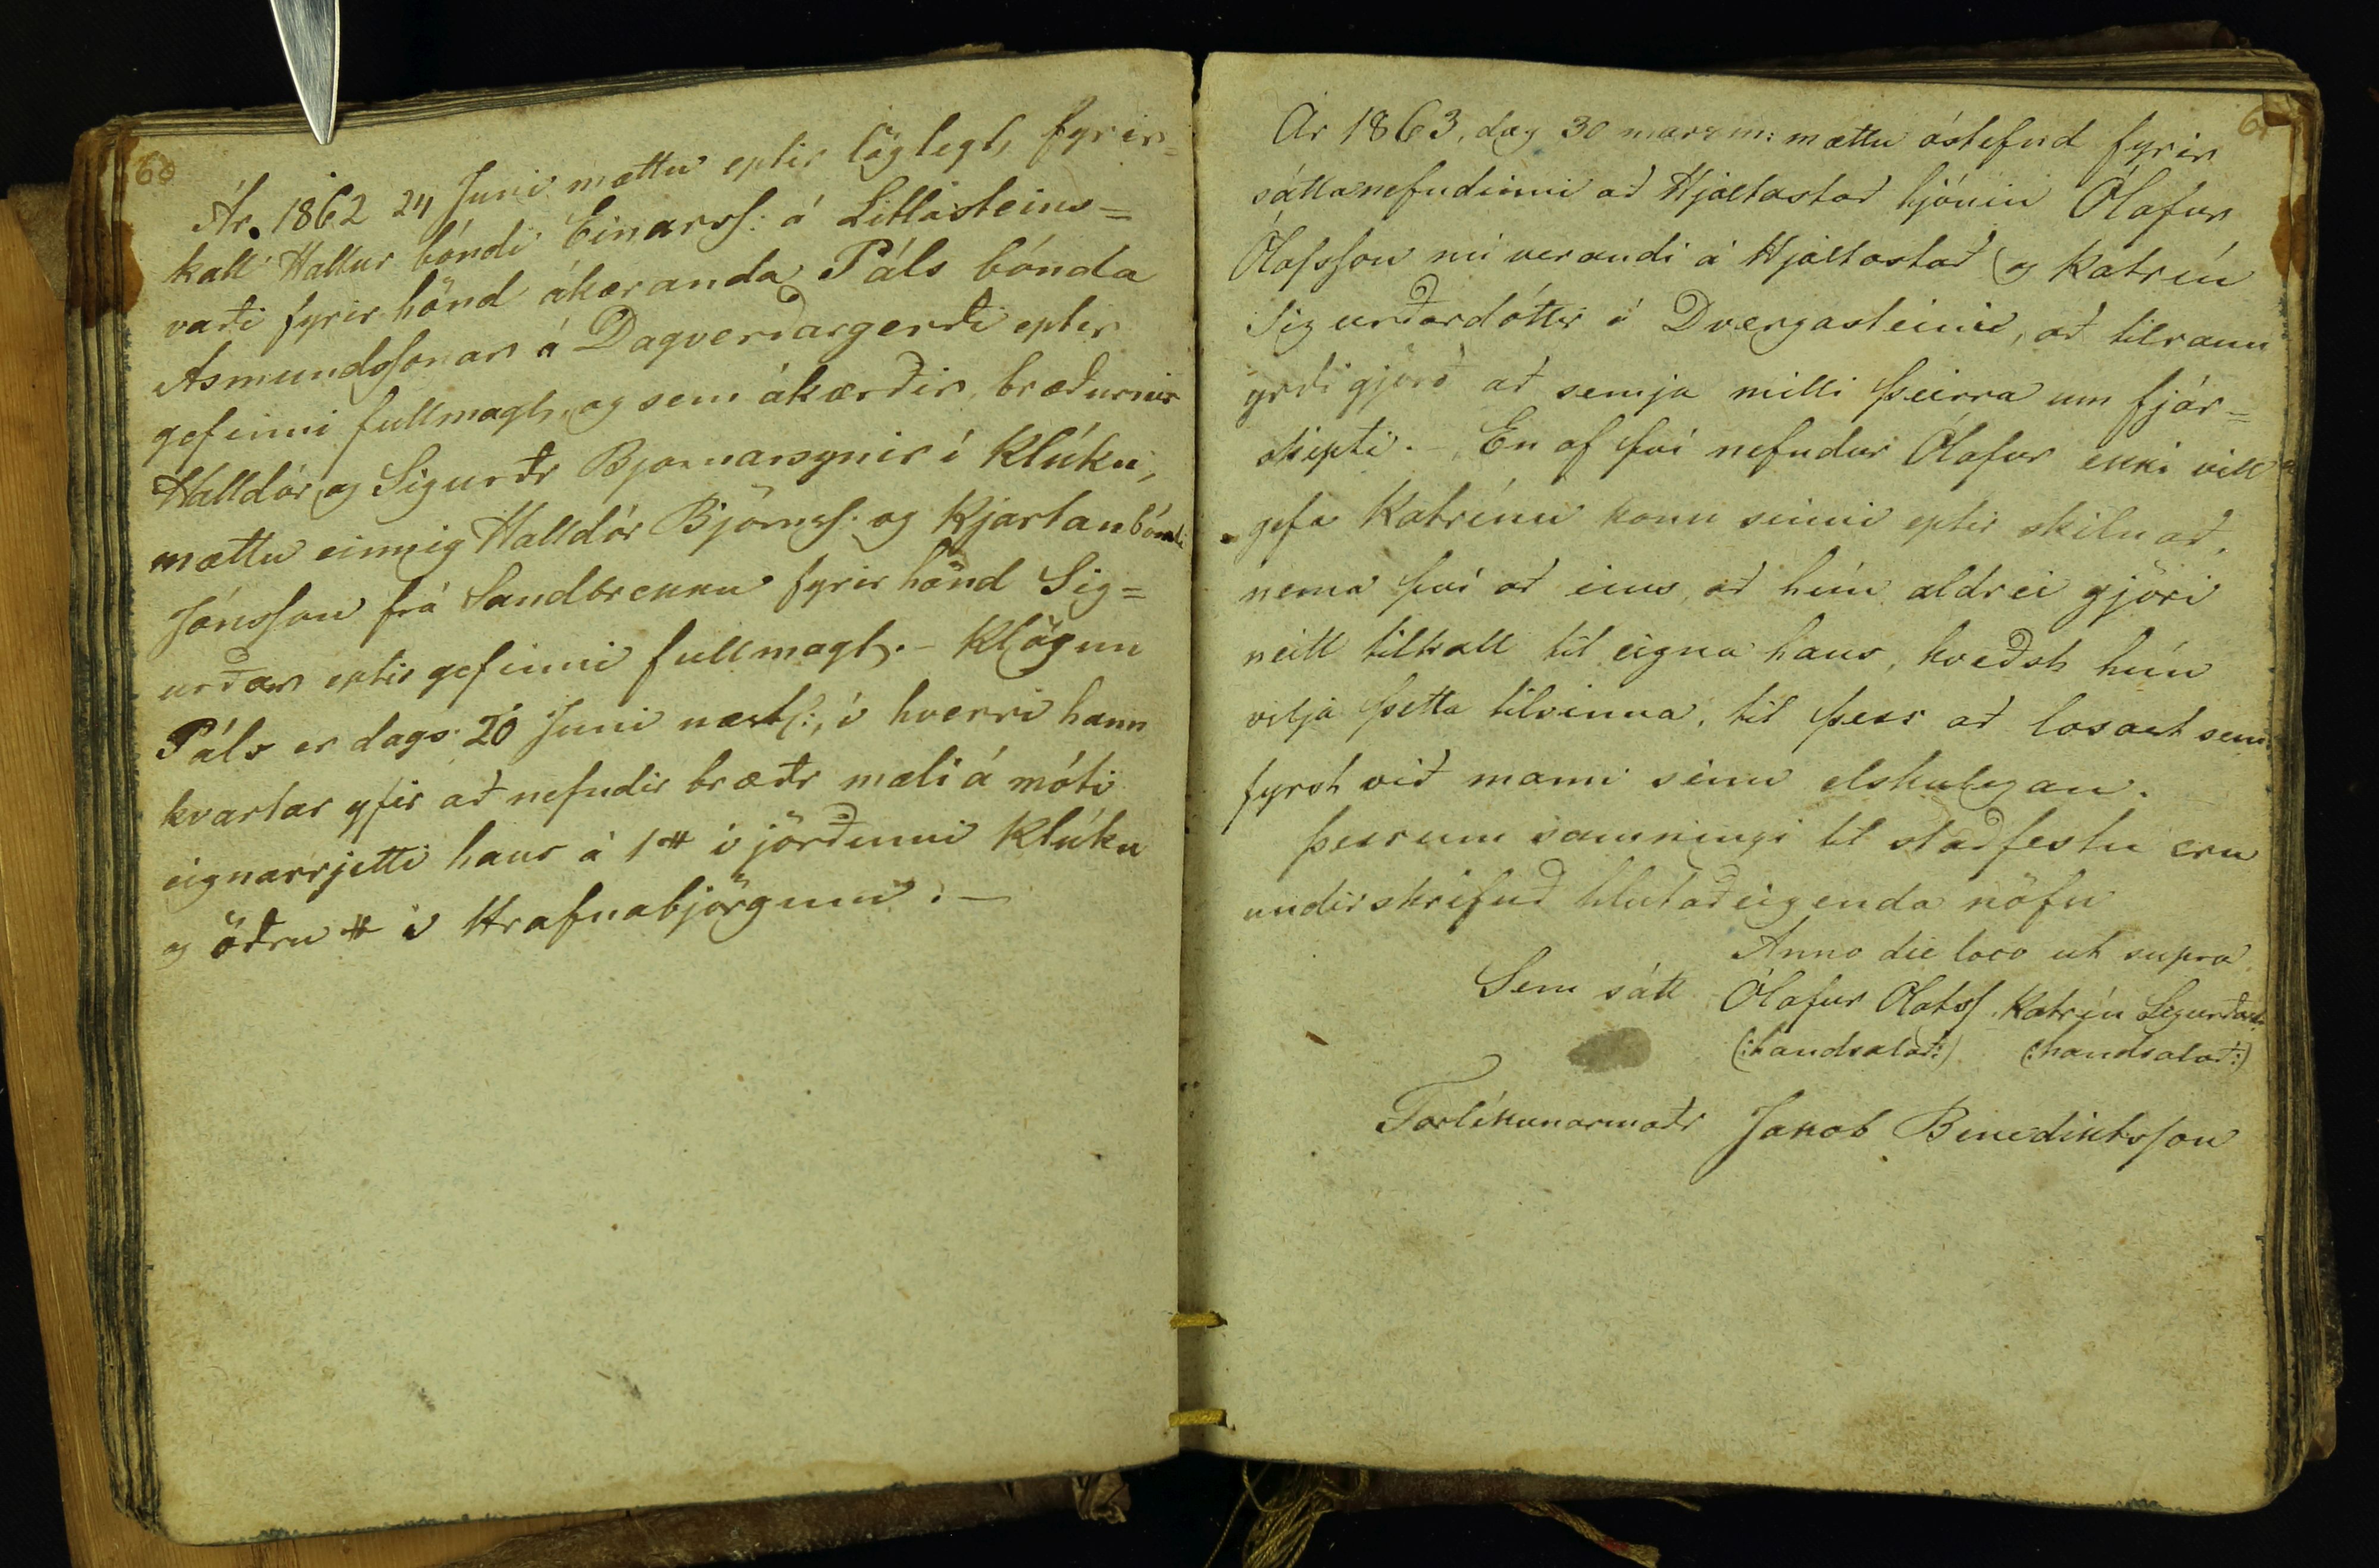 60
Ár. 1862 24 Juni mættu eptir löglegt, fyrir=
kall Hallur bóndi Einarss: á Litlasteins=
vaði fyrir hönd ákæranda Páls bónda
Asmundssonar á Dagverðargerði eptir
gefinni fullmagt, og sem ákærðir, bræðurnir
Halldór og Sigurðr Bjarnarsynir í Klúku,
mættu einnig Halldór Björnss: og Kjartan bóndi
Jónsson frá Sandbrekku fyrir hönd Sig=
urðar eptir gefinni fullmagt. - Klögun
Páls er dags. 20 Juni næstl:, í hverri hann
kvartar yfir að nefndir bræðr mæli á móti
eignarrjetti hans á 1 # í jörðunni Klúku
og öðru # í Hrafnabjörgum. —
61
Ár 1863, dag 30 marzm: mættu óstefnd fyrir
sáttanefndinni að Hjaltastað hjónin Ólafur
Ólafsson nú verandi á Hjaltastað og Katrín
Sigurðardóttir á Dvergasteini, að tilraun
yrði gjörð að semja milli þeirra um fjár=
skipti. - En af því nefndur Ólafur ekki vill
gefa Katrínu konu sinni eptir skilnað,
nema því að eins, að hún aldrei gjöri
neitt tilkall til eigna hans, kveðst hún
vilja þetta tilvinna, til þess að losast sem
fyrst við mann sinn elskulegan.
Þessum samningi til staðfestu eru
undirskrifuð hlutaðeigenda nöfn
Anno die loco ut supra
Sem sátt Ólafur Olafss Katrín Sigurðard.
(:handsalað:) (:handsalað:)
Forlíkunarmaðr Jakob Benediktsson